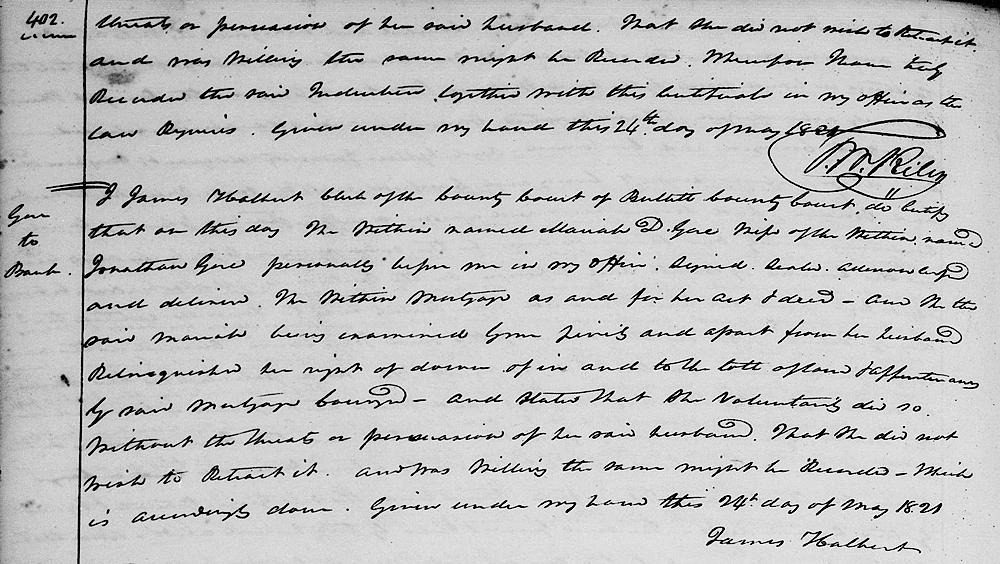 402.
threats or persuasion of her said husband. That she did not wish to Retract it
and was Willing the same might be Recorded. Whereupon I have duly
Recorded the said Indenture together with this Certificate in my office as the
Law Requires. Given under my hand this 24th day of May 1821
I James Halbert clerk of the County Court of Bullitt County Court, do certify
Gore
to
Bank.
that on this day The Within named Mariah D. Gore Wife of the Within named
Jonathan Gore personally before me in my office. Signed. Sealed. acknowledged
and delivered. The Within Mortgage as and for her act & deed – and She the
said Mariah being examined by me privily and apart from her husband
Relinquished her right of dower of in and to the lott of land & appurtenances
by said Mortgage Conveyed – and stated that She Voluntarily did so.
Without the threats or persuasion of her said husband. That She did not
wish to Retract it. and was Willing the same might be Recorded – Which
is accordingly done. Given under my hand this 24th day of May 1821
James Halbert